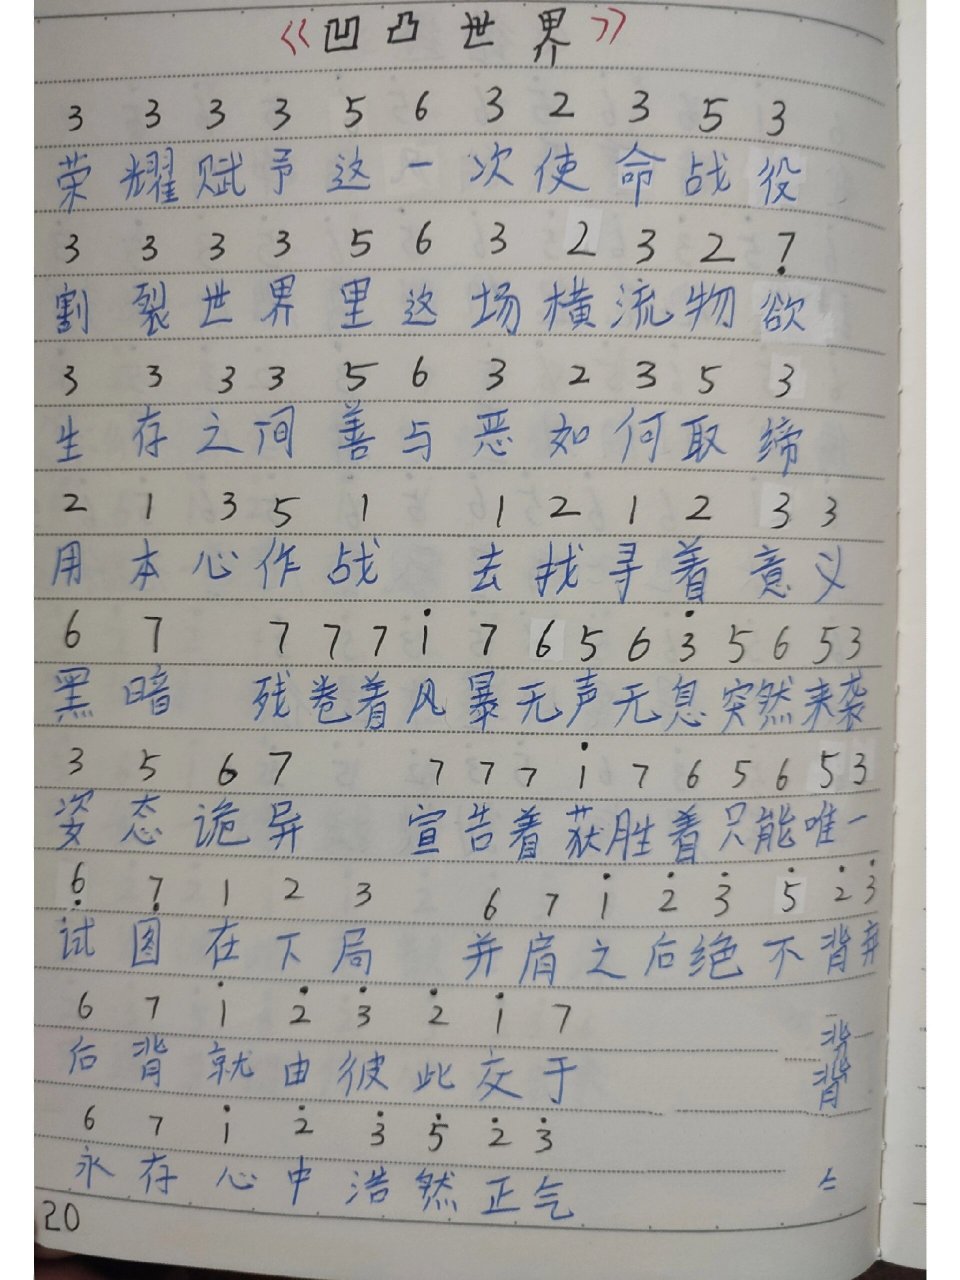 《凹凸世界》
3 3 3 3 5 6 3 2 3 5 3
荣耀赋予这一次使命战役
3 3 3 3 5 6 3 2 3 2 7̣
割裂世界里这场横流物欲
3 3 3 3 5 6 3 2 3 5 3
生存之间善与恶如何取缔
2 1 3 5 1 1 2 1 2 3 3
用本心作战 去找寻着意义
6 7 7 7 7 1̇ 7 6 5 6 3̇ 5 6 5 3
黑暗 残卷着风暴无声无息突然来袭
3 5 6 7 7 7 7 1̇ 7 6 5 6 5 3
姿态诡异 宣告着获胜着只能唯一
6̣ 7̣ 1 2 3 6 7 1̇ 2̇ 3̇ 5̇ 2̇ 3̇
试图在下局 并肩之后绝不背弃
6 7 1̇ 2̇ 3̇ 2̇ 1̇ 7
后背就由彼此交于
背
6 7 1̇ 2̇ 3̇ 5̇ 2̇ 3̇
永存心中浩然正气
20